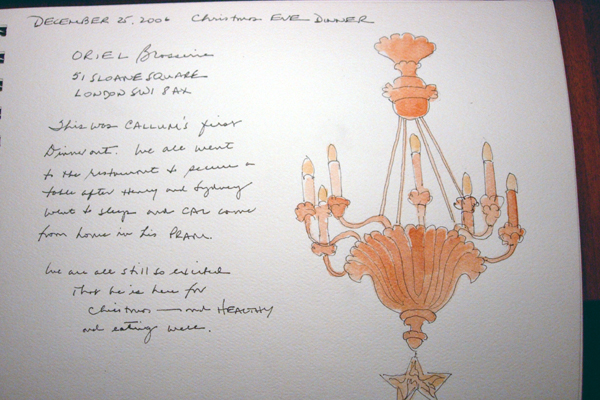 DECEMBER 25, 2006 Christmas EVE DINNER
ORIEL Brasserie
51 SLOANE SQUARE
LONDON SW1 8AX
This was CALLUM's first
Dinner out. We all went
to the restaurant to secure a
table after Henry and Sydney
went to sleep and CAL came
from home in his PRAM.
We are all still so excited
that he is here for
Christmas — and HEALTHY
and eating well.